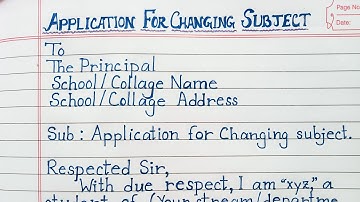 APPLICATION FOR CHANGING SUBJECT
Page No
Date:
To
The Principal
School/Collage Name
School/Collage Address
Sub : Application for Changing subject.
Respected Sir,
With due respect, I am "xyz," a
student of (Your stream/departme